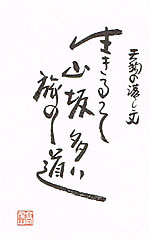 天狗の落し文
生きるって
山坂多い
旅の道